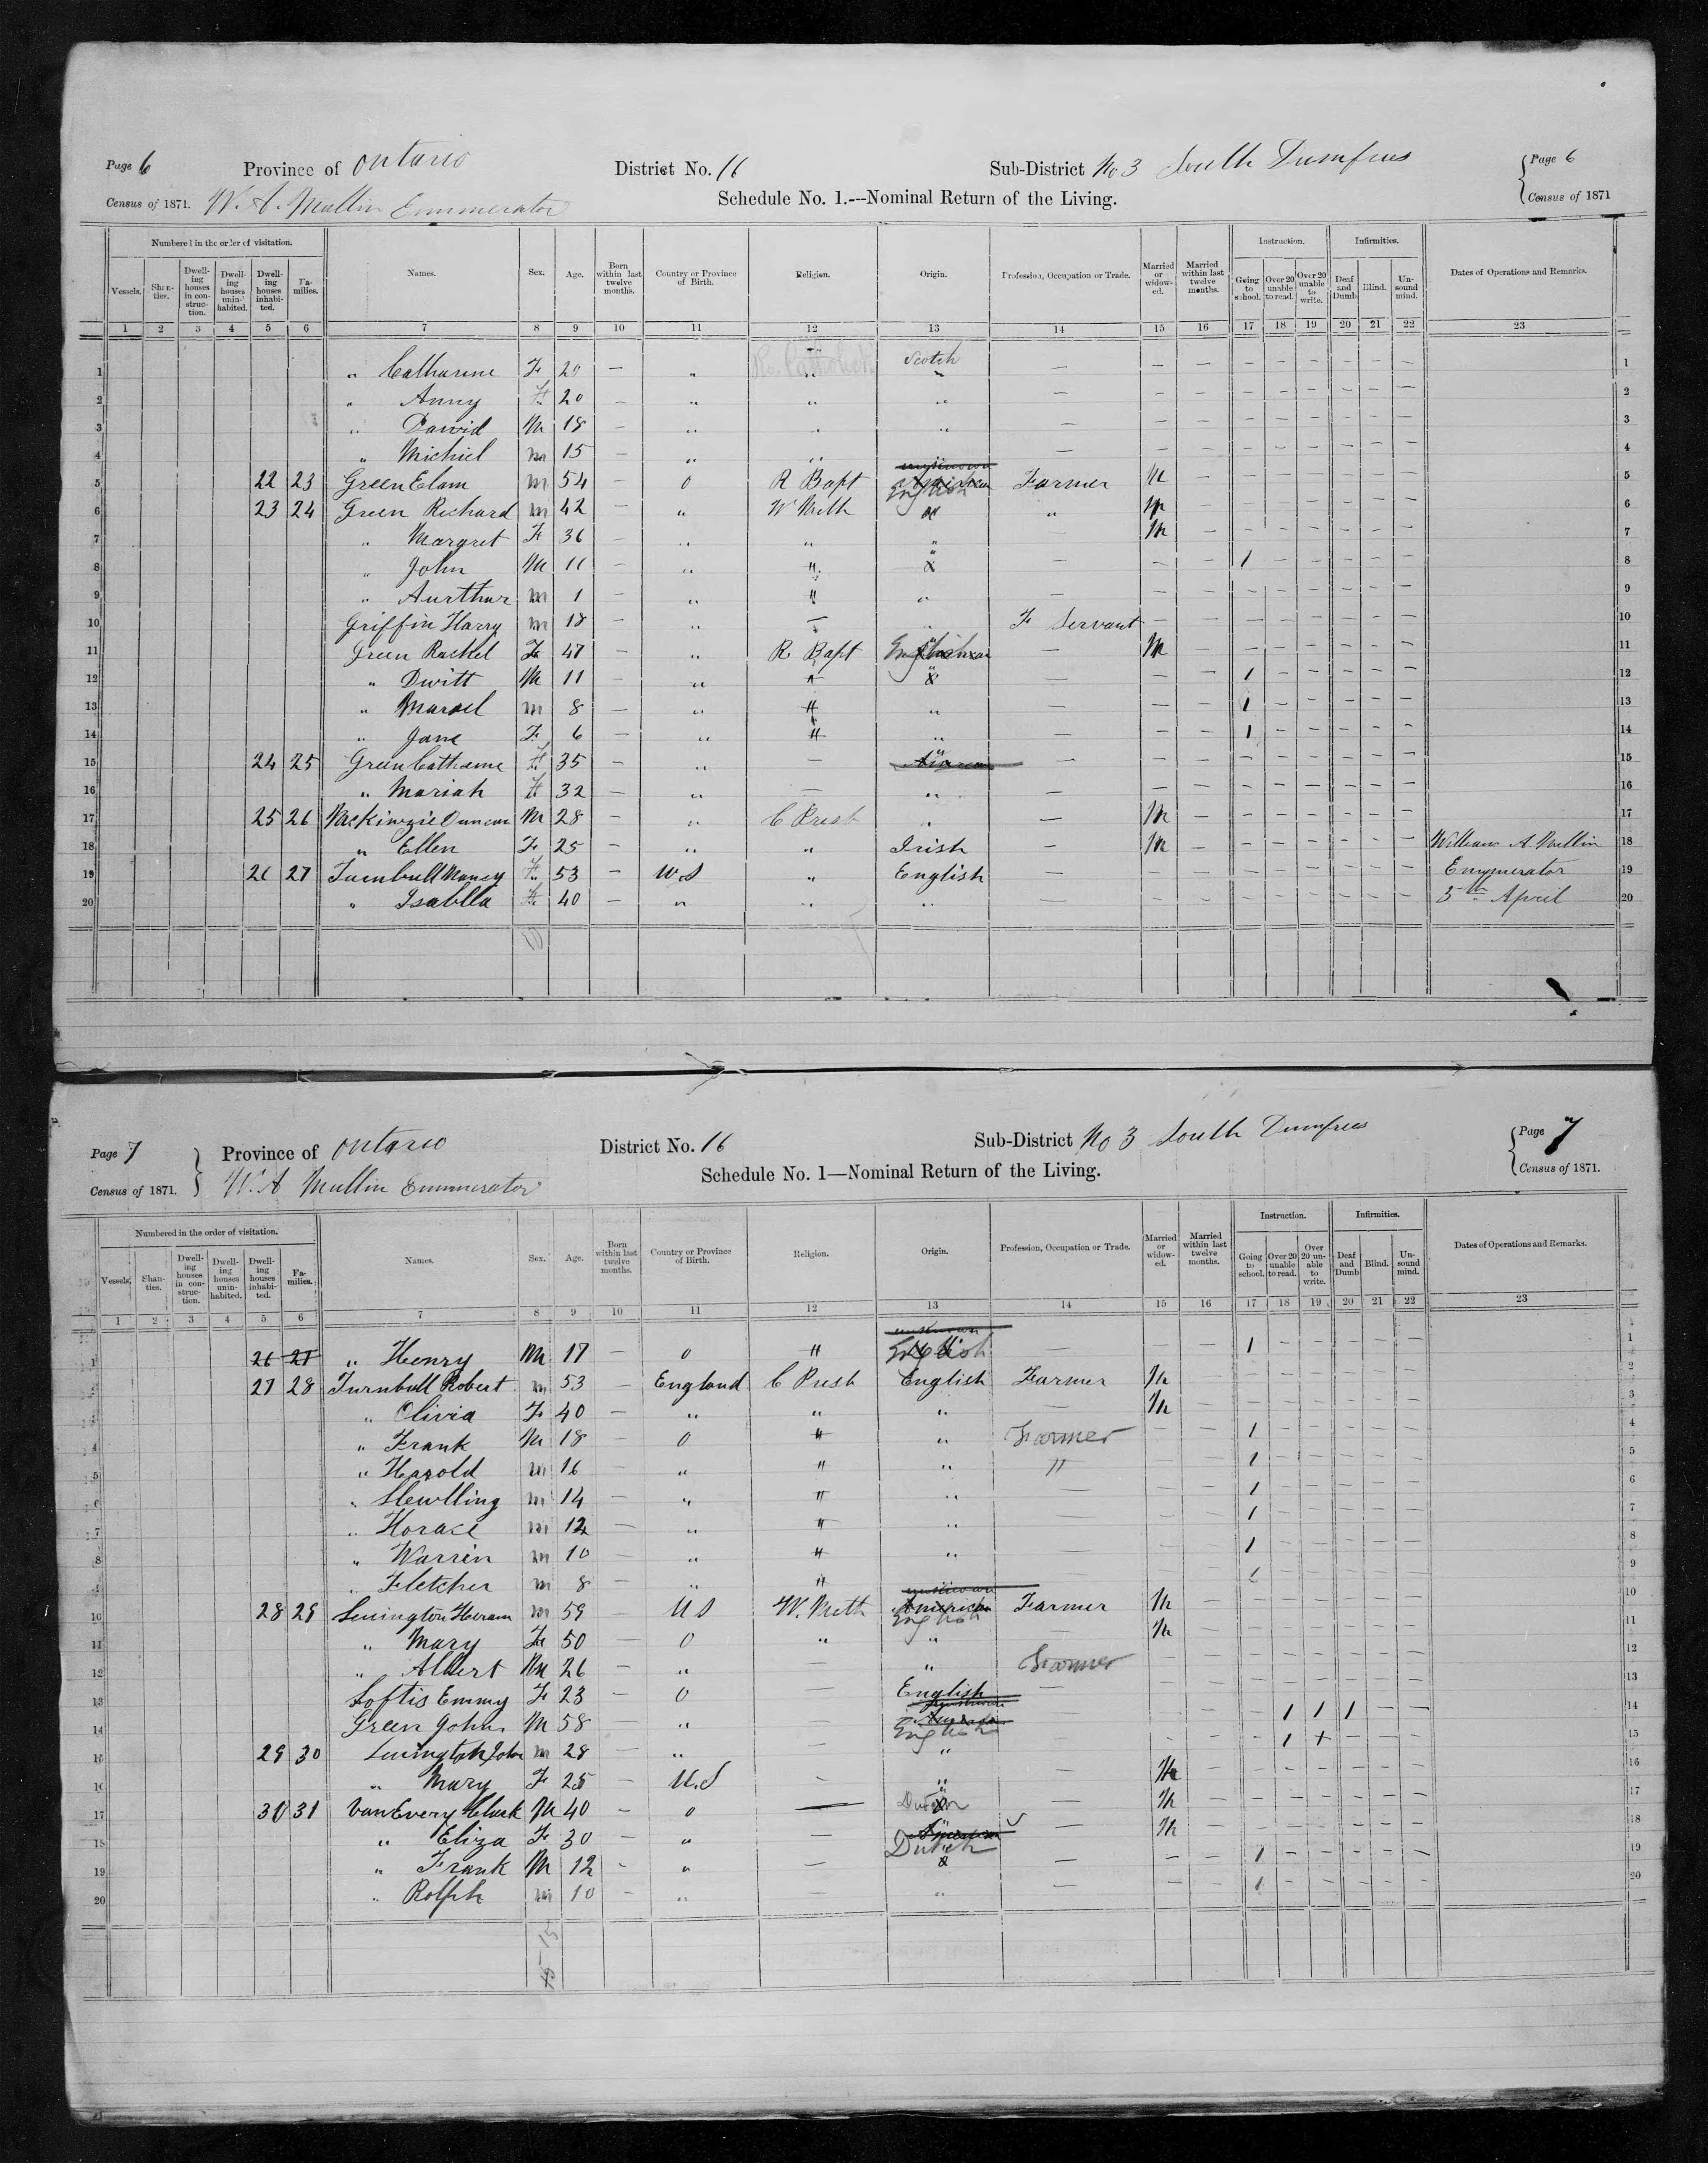 Page 6 Province of Ontario District No. 16 Sub-District No 3 South Dumfries Page 6
Census of 1871. W. A. Mullin Enumerator Schedule No. 1.---Nominal Return of the Living. Census of 1871
Numbered in the order of visitation. Instruction. Infirmities.
Vessels. Shanties. Dwelling houses in construction. Dwelling houses uninhabited. Dwelling houses inhabited. Families. Names. Sex. Age. Born within last twelve months. Country or Province of Birth. Religion. Origin. Profession, Occupation or Trade. Married or widowed. Married within last twelve months. Going to school. Over 20 unable to read. Over 20 unable to write. Deaf and Dumb Blind. Unsound mind. Dates of Operations and Remarks.
1 2 3 4 5 6 7 8 9 10 11 12 13 14 15 16 17 18 19 20 21 22 23
1 " Catharine F 20 — " " Scotch — — — — — — — — — 1
2 " Anny F 20 — " " " — — — — — — — — — 2
3 " David M 18 — " " " — — — — — — — — — 3
4 " Michiel m 15 — " " — — — — — — — — — 4
5 22 23 Green Elam m 54 — O R Bapt English Farmer M — — — — — — — 5
6 23 24 Green Richard m 42 — " W Meth " " M — — — — — — — 6
7 " Margret F 36 — " " " — M — — — — — — — 7
8 " John M 11 — " " " — — — 1 — — — — — 8
9 " Aurthur m 1 — " " " — — — — — — — — — 9
10 Griffin Harry m 18 — " — F Servant — — — — — — — — 10
11 Green Rachel F 47 — " R Bapt English — M — — — — — — — 11
12 " Dwitt M 11 — " " " — — — 1 — — — — — 12
13 " m 8 — " " " — — — 1 — — — — — 13
14 " Jane F 6 — " " " — — — 1 — — — — — 14
15 24 25 Green Catharine F 35 — " — — — — — — — — — — 15
16 " Mariah F 32 — " — " — — — — — — — — — 16
17 25 26 Mackinzie Duncan M 28 — " C Presb " — M — — — — — — — 17
18 " Ellen F 25 — " " Irish — M — — — — — — — William A Mullin 18
19 26 27 Turnbull Nancy F 53 — U.S " English — — — — — — — — — Enumerator 19
20 " Isablla F 40 — " " " — — — — — — — — — 5th April 20
Page 7 Province of Ontario District No. 16 Sub-District No 3 South Dumfries Page 7
Census of 1871. W. A Mullin Enumerator Schedule No. 1—Nominal Return of the Living. Census of 1871.
Numbered in the order of visitation. Instruction. Infirmities.
Vessels. Shanties. Dwelling houses in construction. Dwelling houses uninhabited. Dwelling houses inhabited. Families. Names. Sex. Age. Born within last twelve months. Country or Province of Birth. Religion. Origin. Profession, Occupation or Trade. Married or widowed. Married within last twelve months. Going to school. Over 20 unable to read. Over 20 unable to write. Deaf and Dumb Blind. Unsound mind. Dates of Operations and Remarks.
1 2 3 4 5 6 7 8 9 10 11 12 13 14 15 16 17 18 19 20 21 22 23
1 26 27 " Henry M 17 — O " English — — — 1 — — — — — 1
2 27 28 Turnbull Robert m 53 — England C Presb English Farmer M — — — — — — — 2
3 " Olivia F 40 — " " " — M — — — — — — — 3
4 " Frank M 18 — O " " Farmer — — 1 — — — — — 4
5 " Harold m 16 — " " " " — — 1 — — — — — 5
6 " m 14 — " " " — — — 1 — — — — — 6
7 " Horace m 12 — " " " — — — 1 — — — — — 7
8 " Warrin m 10 — " " " — — — 1 — — — — — 8
9 " Fletcher m 8 — " " — — — 1 — — — — — 9
10 28 29 Hiram m 59 — U S W. Meth English Farmer M — — — — — — — 10
11 " Mary F 50 — O " " — M — — — — — — — 11
12 " Albert M 26 — " — " Farmer — — — — — — — — 12
13 Loftis Emmy F 23 — O — English — — — — — — — — — 13
14 Green John M 58 — " — English — — — — 1 1 1 — — 14
15 29 30 John m 28 — " — " — — — — 1 + — — — 15
16 " Mary F 25 — U.S — " — M — — — — — — — 16
17 30 31 VanEvery M 40 — O — Dutch — M — — — — — — — 17
18 " Eliza F 30 — " — — M — — — — — — — 18
19 " Frank M 12 — " — Dutch — — — 1 — — — — — 19
20 " Rolph m 10 — " — " — — — 1 — — — — — 20